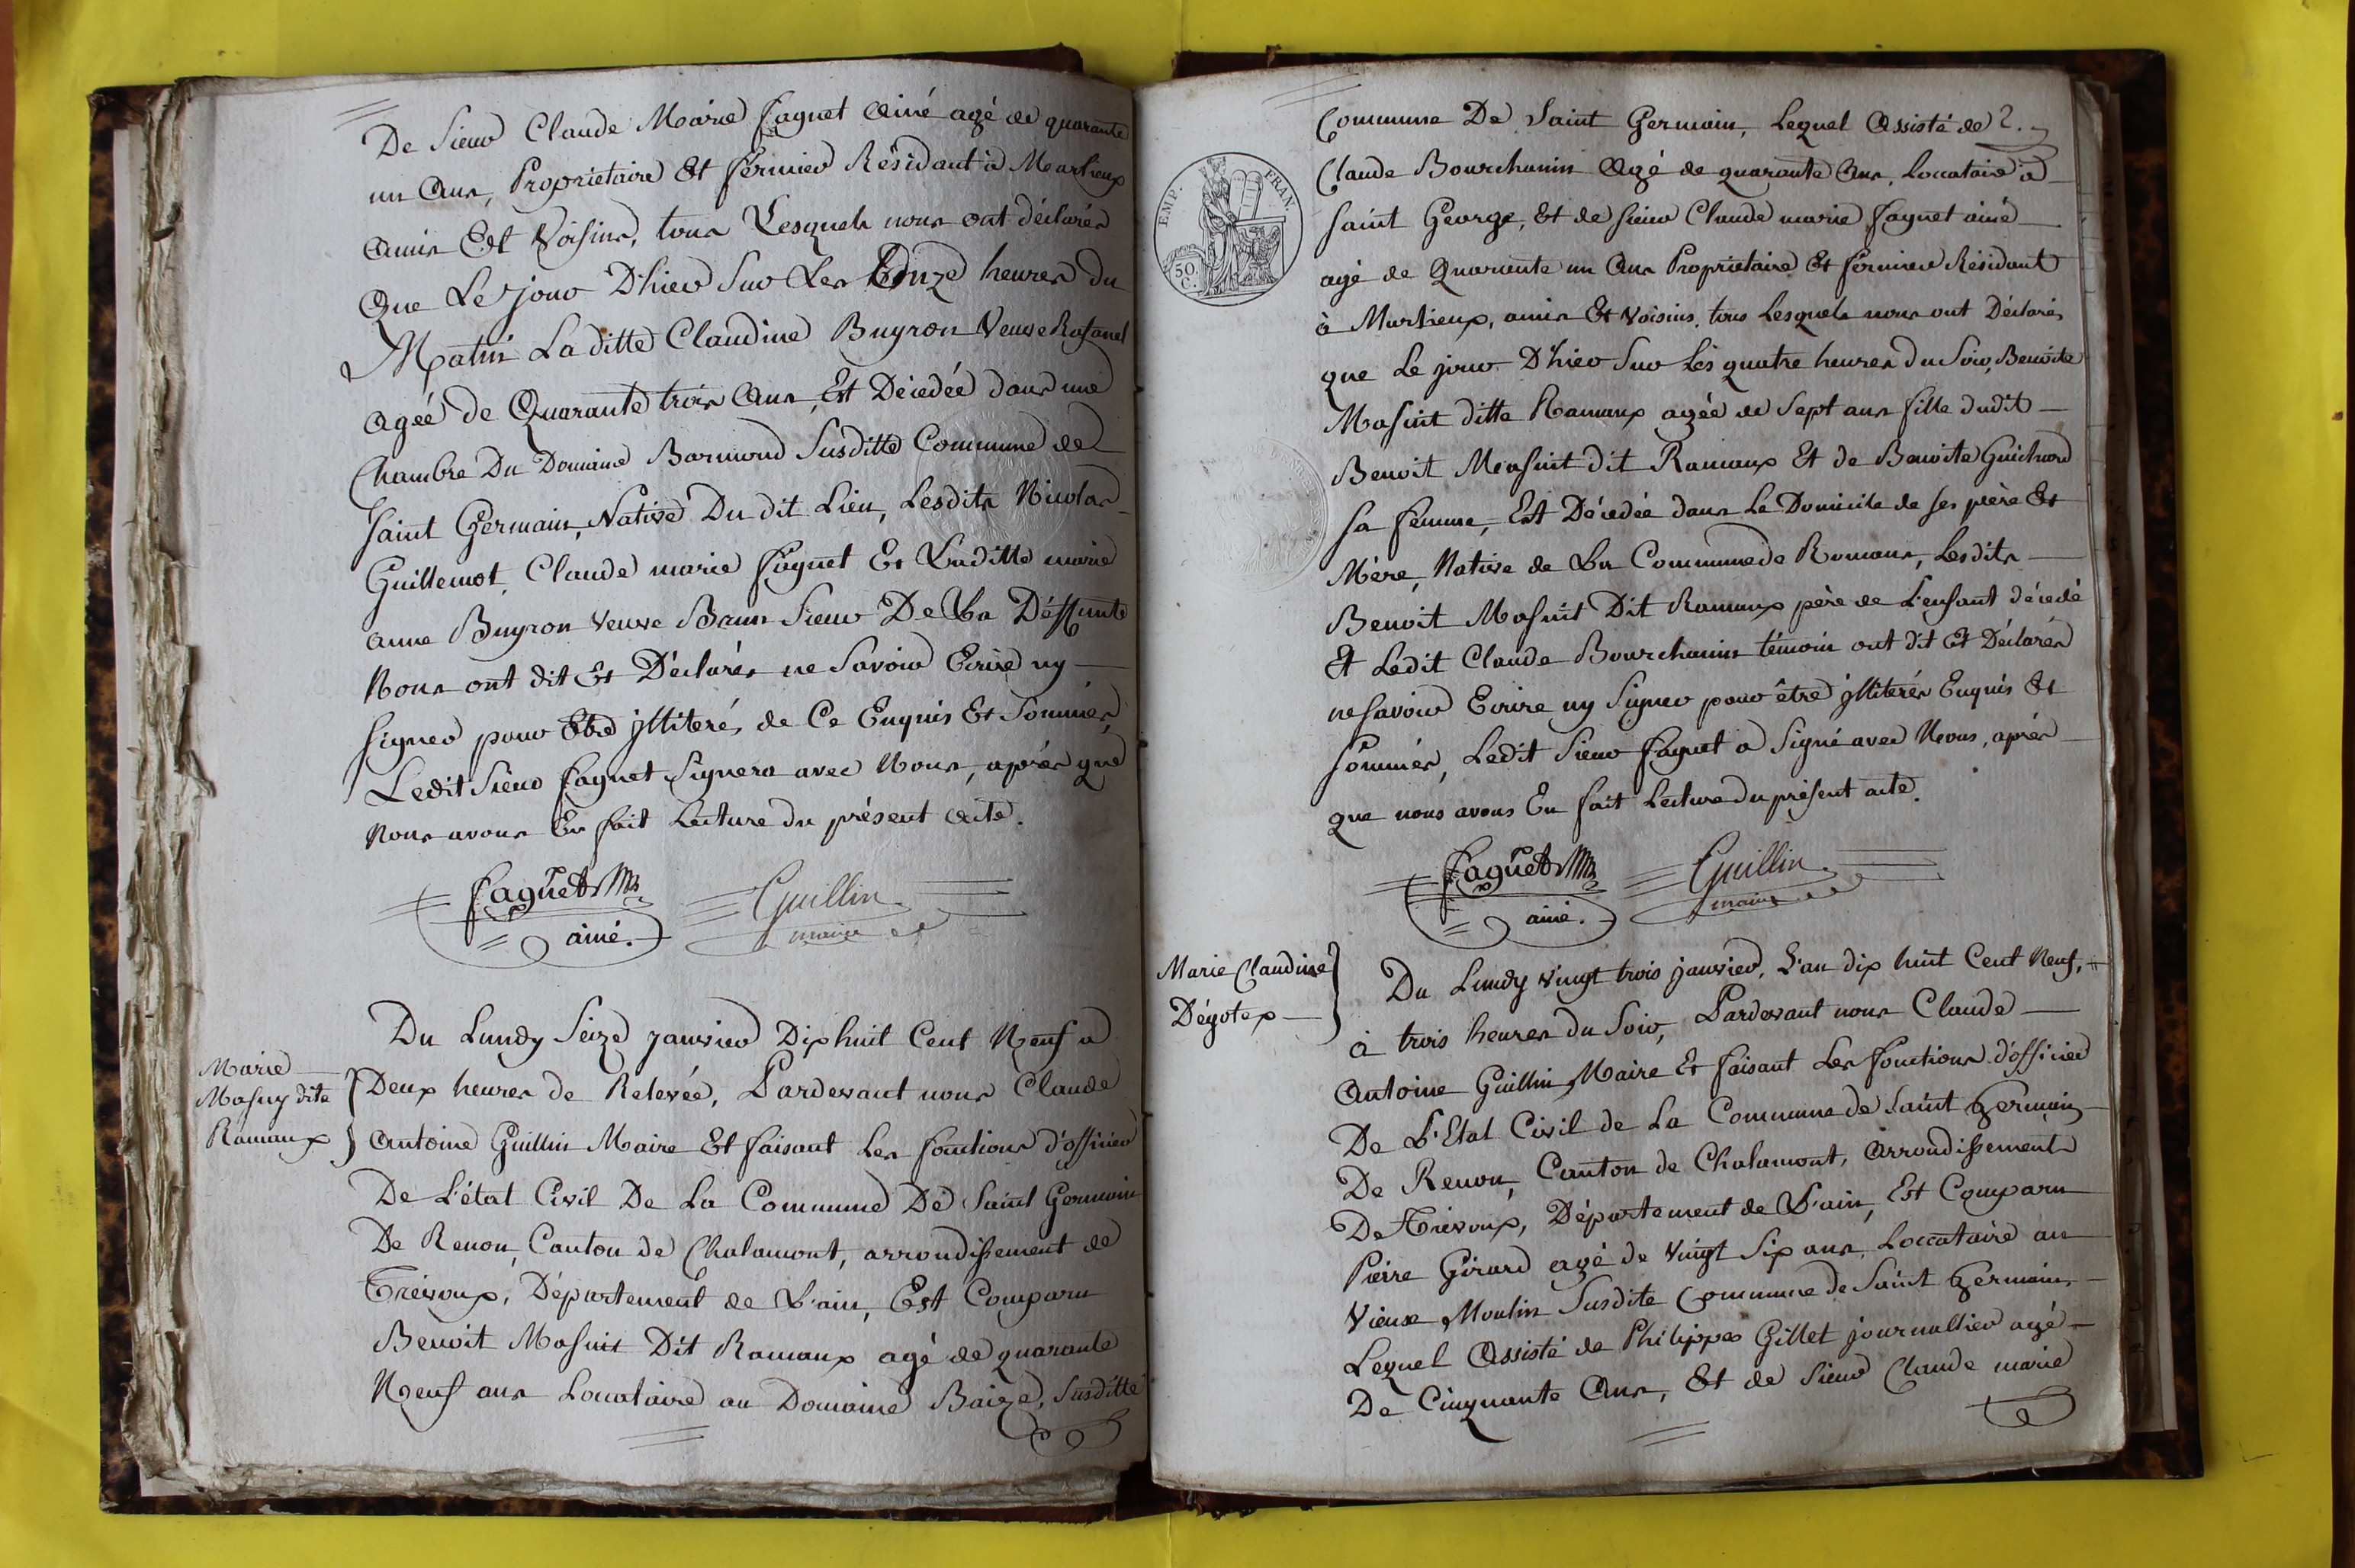 De Sieur Claude Marie Faguet ainé agé de quarante
un Ans, Proprietaire Et fermier Résidant à Marlieux
Amis Et Voisins, tous Lesquels nous ont déclarés
Que Le jour D'hier Sur Les Onze heures du
Matin La ditte Claudine Buyron Veuve
Agée de Quarante trois Ans, Est Décédée dans une
Chambre Du Domaine Susditte Commune de
Saint Germain, Native Du dit Lieu, Lesdits Nicolas
Guillemot, Claude marie Faguet Et Laditte marie
anne Buyron Veuve Brun Sieur De La Déffunte
Nous ont dit Et Déclarés ne Savoir Ecrire ny
Signer pour Etre jlliterés de Ce Enquis Et Sommés,
Ledit Sieur Faguet Signera avec Nous, après que
Nous avons En fait Lecture du présent acte.
Faguet Guillin
ainé. maire
Marie
Masuy dite
Ramaux
Du Lundy Seize janvier Dixhuit Cent Neuf a
Deux heures de Relevée, Pardevant nous Claude
Antoine Guillin Maire Et faisant Les fonctions d'officier
De L'état Civil De La Commune De Saint Germain
De Renon, Canton de Chalamont, arrondissement de
Trévoux, Département de L'ain, Est Comparu
Benoit Masuit Dit Ramaux agé de quarante
Neuf ans Locataire au Domaine Baize, Susditte
EMP. FRAN.
50
C.
Commune De Saint Germain, Lequel Assisté de 2.
Claude Bourchanin Agé de quarante Ans, Locataire à
Saint George, Et de Sieur Claude marie Faguet ainé
agé de Quarente un Ans Proprietaire Et fermier Résidant
à Marlieux, amis Et Voisins, tous Lesquels nous ont Déclarés
que Le jour D'hier Sur Les quatre heures du Soir, Benoite
Masuit ditte Ramaux agée de Sept ans fille dudit
Benoit Masuit dit Ramaux Et de Benoite Guichard
Sa femme, Est Décédée dans Le Domicile de Ses père Et
Mère, Native de La Commune de Romans, Lesdits
Benoit Masuit Dit Ramaux père de L'enfant décédé
Et Ledit Claude Bourchanin témoin ont dit Et Déclarés
ne Savoir Ecrire ny Signer pour être jlliterés Enquis Et
Sommés, Ledit Sieur Faguet a Signé avec Nous, après
que nous avons En fait Lecture du présent acte.
Faguet Guillin
ainé. maire
Marie Claudine
Dégotex
Du Lundy Vingt trois janvier, L'an dix huit Cent Neuf,
à trois heures du Soir, Pardevant nous Claude
Antoine Guillin Maire Et faisant Les fonctions d'officier
De L'Etat Civil de La Commune de Saint Germain
De Renon, Canton de Chalamont, Arrondissement
De Trévoux, Département de L'ain, Est Comparu
Pierre Girard agé de Vingt Six ans, Loccataire au
Vieux Moulin Susdite Commune de Saint Germain,
Lequel Assisté de Philippes Gillet journallier agé
De Cinquante Ans, Et de Sieur Claude marie